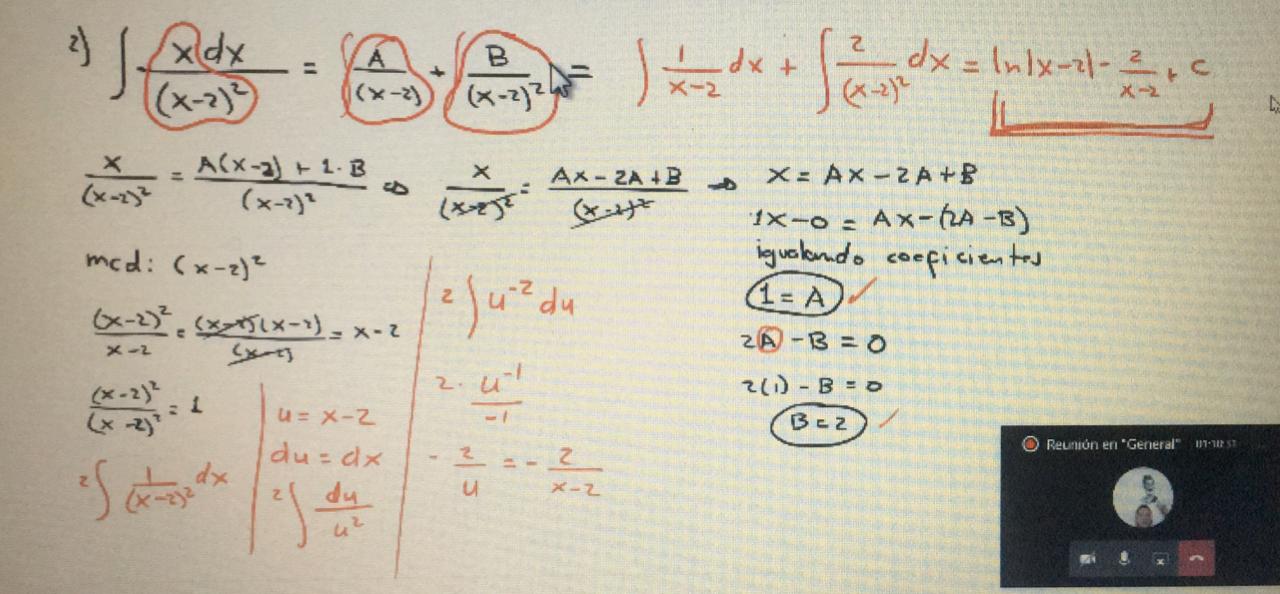 2) ∫ x dx / (x-2)² = A / (x-2) + B / (x-2)² = ∫ 1 / x-2 dx + ∫ 2 / (x-2)² dx = ln|x-2| - 2 / x-2 + c
x / (x-2)² = A(x-2) + 1·B / (x-2)² ⇨ x / (x-2)² = Ax - 2A + B / (x-2)² → x = Ax - 2A + B
1x - 0 = Ax - (2A - B)
igualando coeficientes
mcd: (x-2)²
1 = A ✓
(x-2)² / x-2 = (x-2)(x-2) / (x-2) = x-2
2A - B = 0
(x-2)² / (x-2)² = 1
2(1) - B = 0
B = 2 ✓
2 ∫ 1 / (x-2)² dx
u = x-2
du = dx
2 ∫ du / u²
2 ∫ u⁻² du
2 · u⁻¹ / -1
- 2 / u = - 2 / x-2
Reunión en "General" 01:10:51